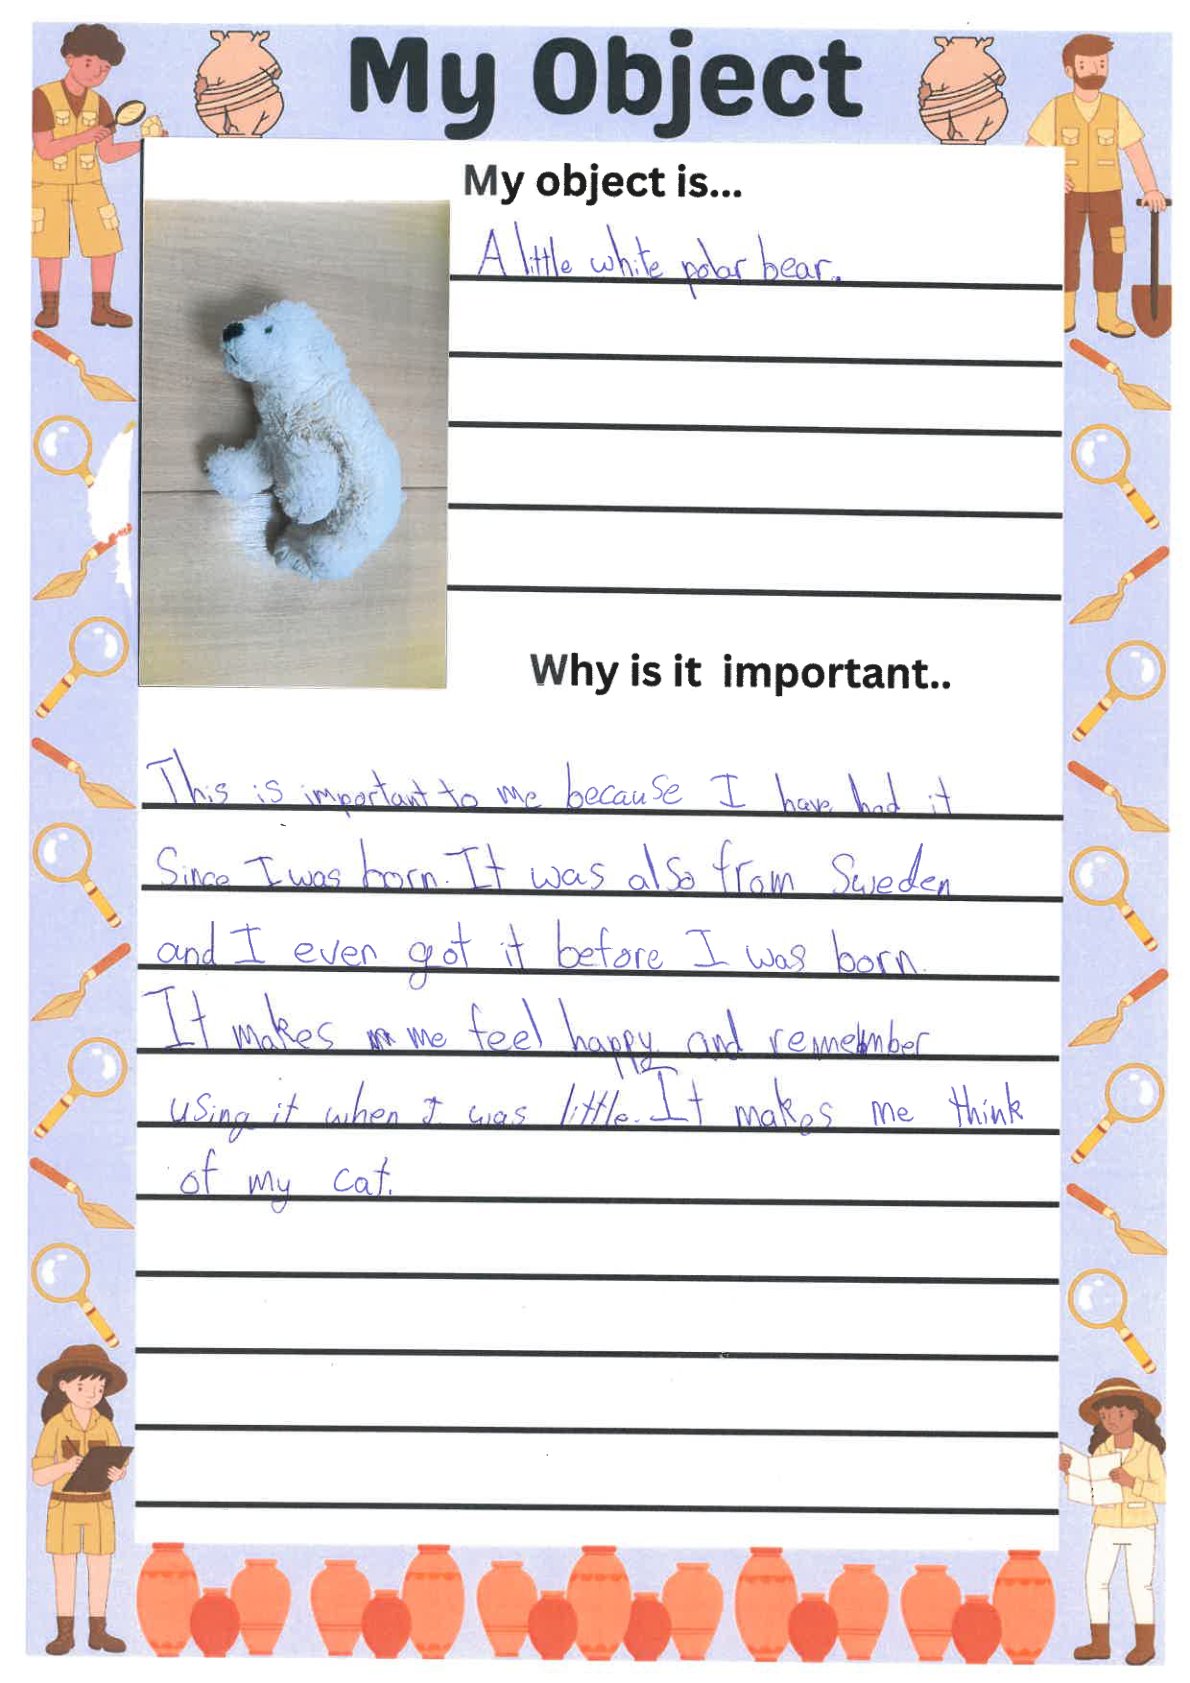 My Object
My object is...
A little white polar bear.
Why is it important..
This is important to me because I have had it
Since I was born. It was also from Sweden
and I even got it before I was born.
It makes me feel happy and remember
using it when I was little. It makes me think
of my cat.